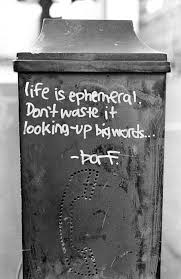 life is ephemeral.
Don't waste it
looking-up big words...